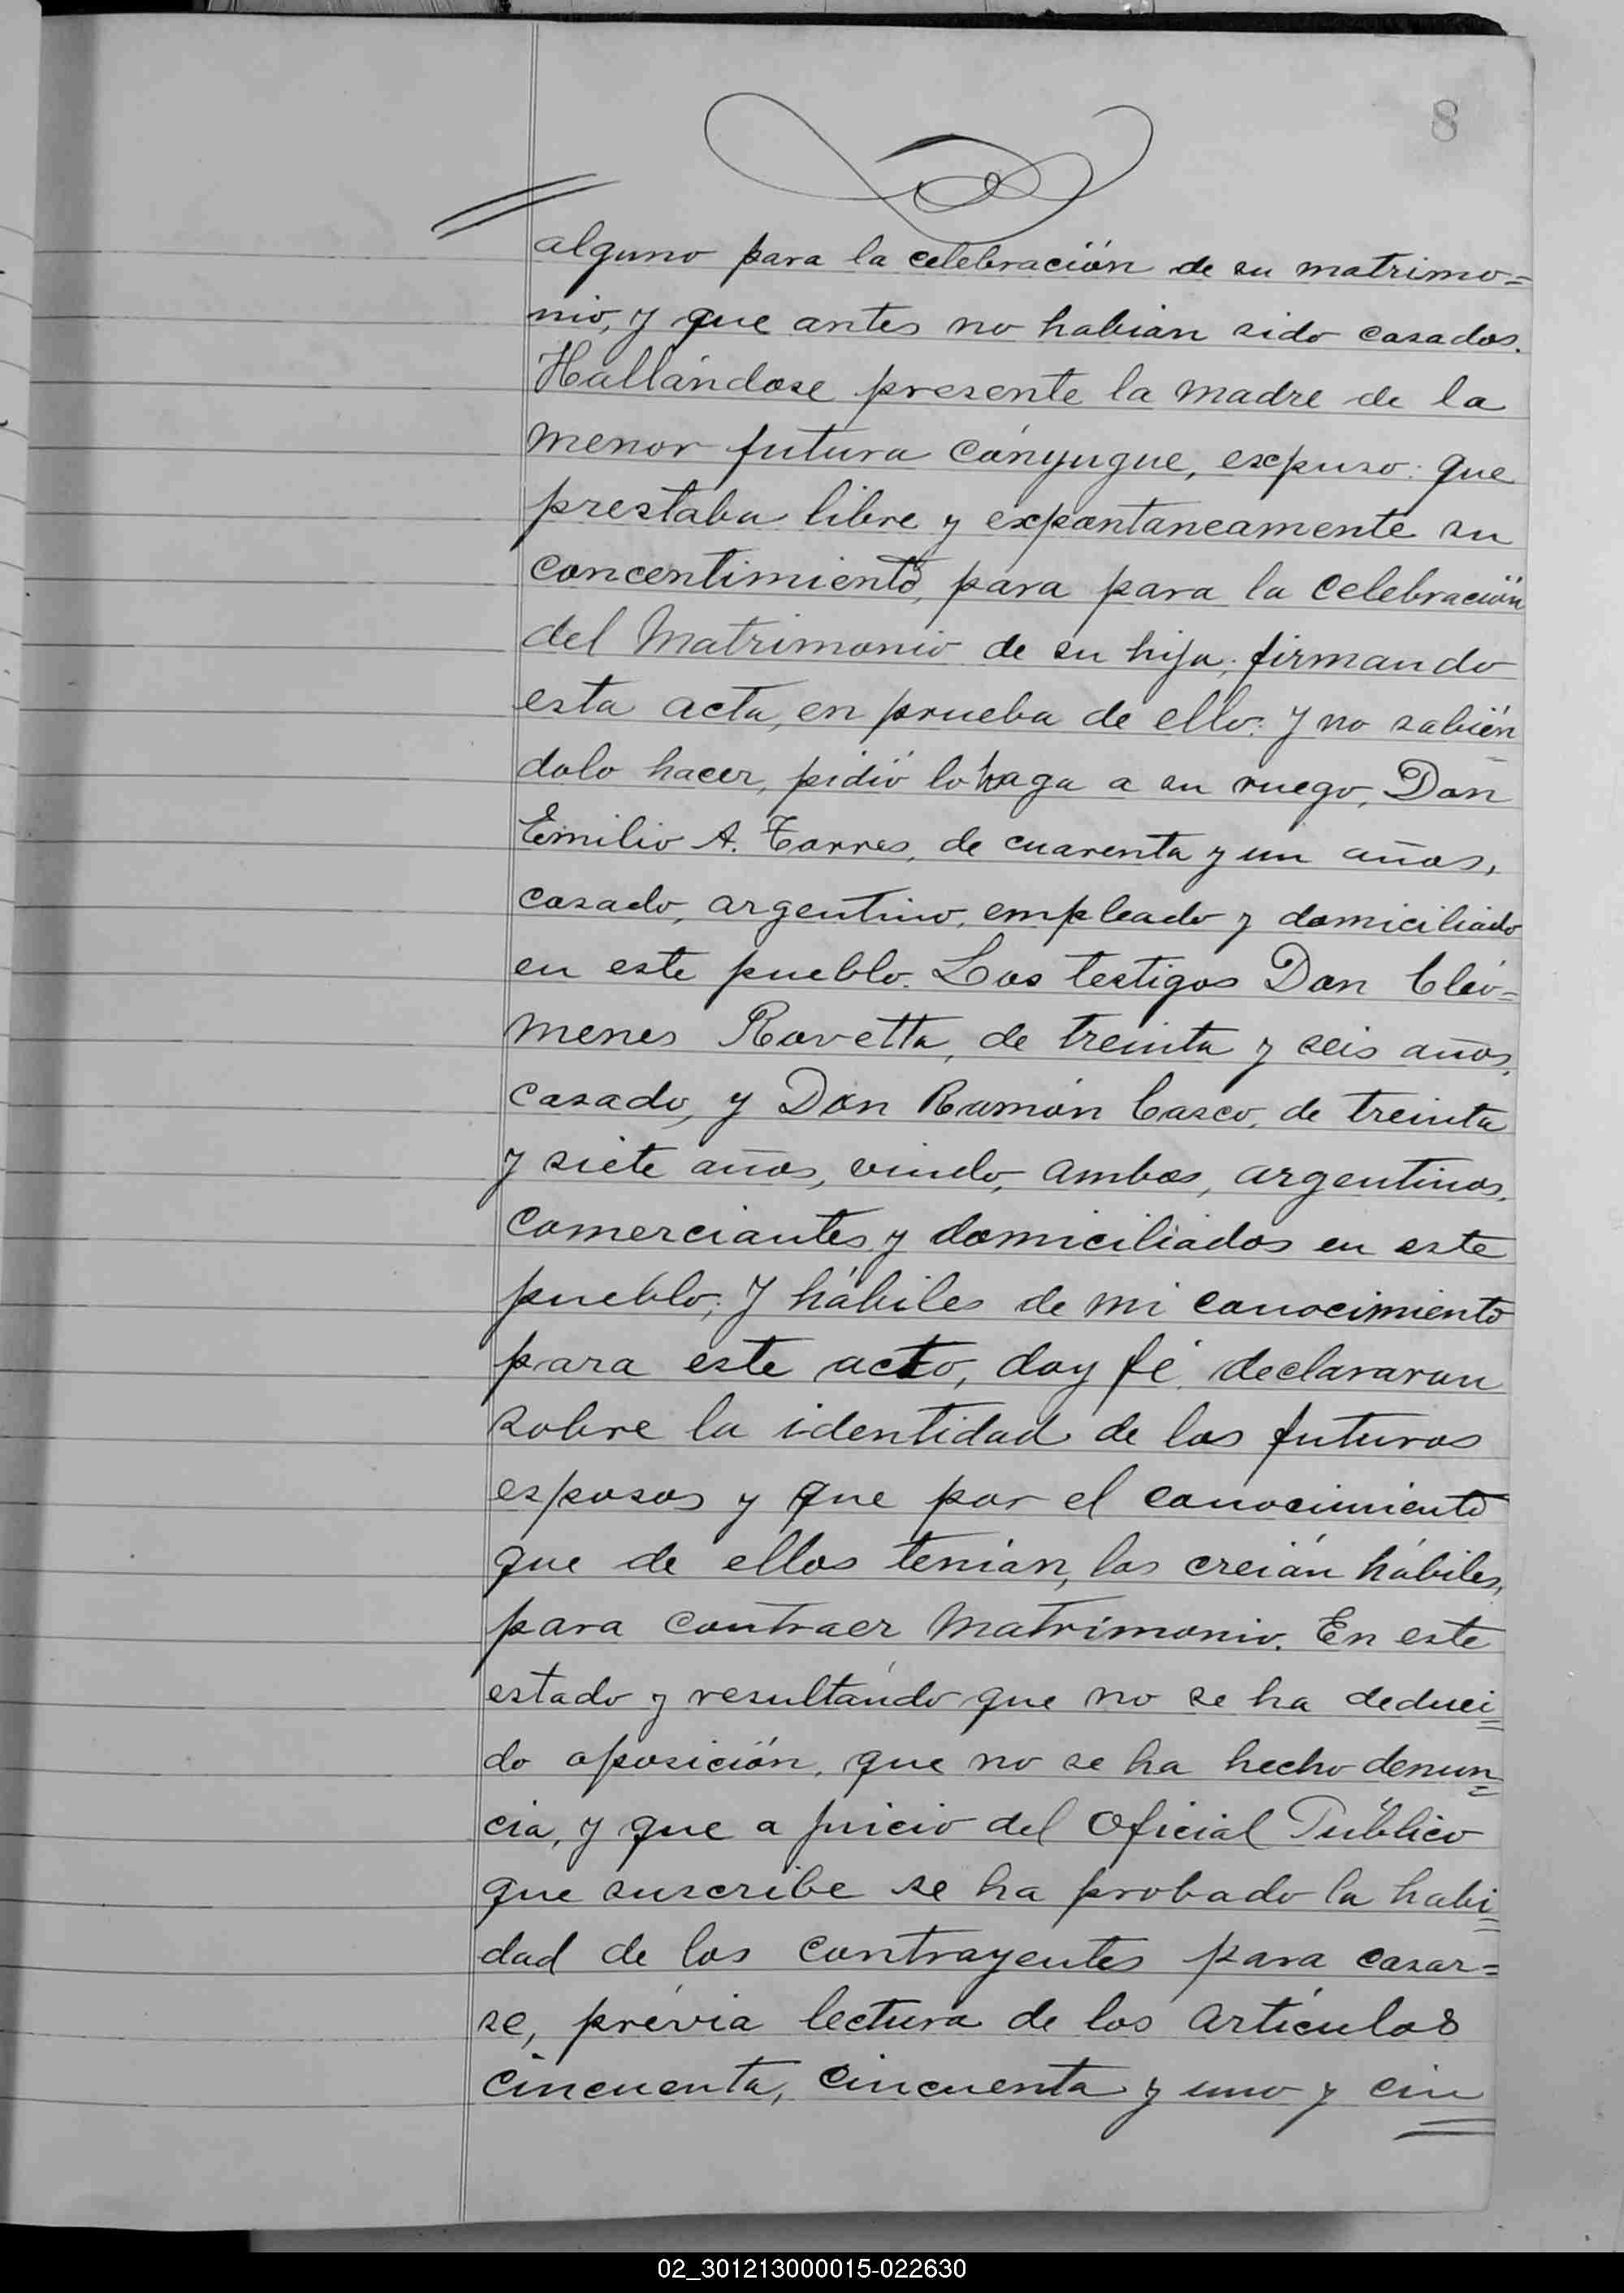 8
alguno para la celebración de su matrimo=
nio, y que antes no habian sido casados.
Hallándose presente la madre de la
menor futura cónyugue, expuso: que
prestaba libre y expontaneamente su
concentimiento, para para la celebración
del Matrimonio de su hija; firmando
esta acta, en prueba de ello: y no sabién
dolo hacer, pidió lo haga a su ruego, Don
Emilio A. Torres, de cuarenta y un años,
casado, argentino, empleado y domiciliado
en este pueblo. Los testigos Don Cleó=
menes Rovetta, de treinta y seis años,
casado, y Don Ramón Casco, de treinta
y siete años, viudo, ambos, argentinos,
comerciantes y domiciliados en este
pueblo; y hábiles de mi conocimiento
para este acto, doy fé declararon
sobre la identidad de los futuros
esposos y que por el conocimiento
que de ellos tenian, los creián hábiles,
para contraer Matrimonio. En este
estado y resultándo que no se ha deduci=
do oposición, que no se ha hecho denun=
cia, y que a juicio del Oficial Público
que suscribe se ha probado la habi=
dad de los contrayentes para casar=
se, prévia lectura de los artículos
cincuenta, cincuenta y uno y cin
02_301213000015-022630